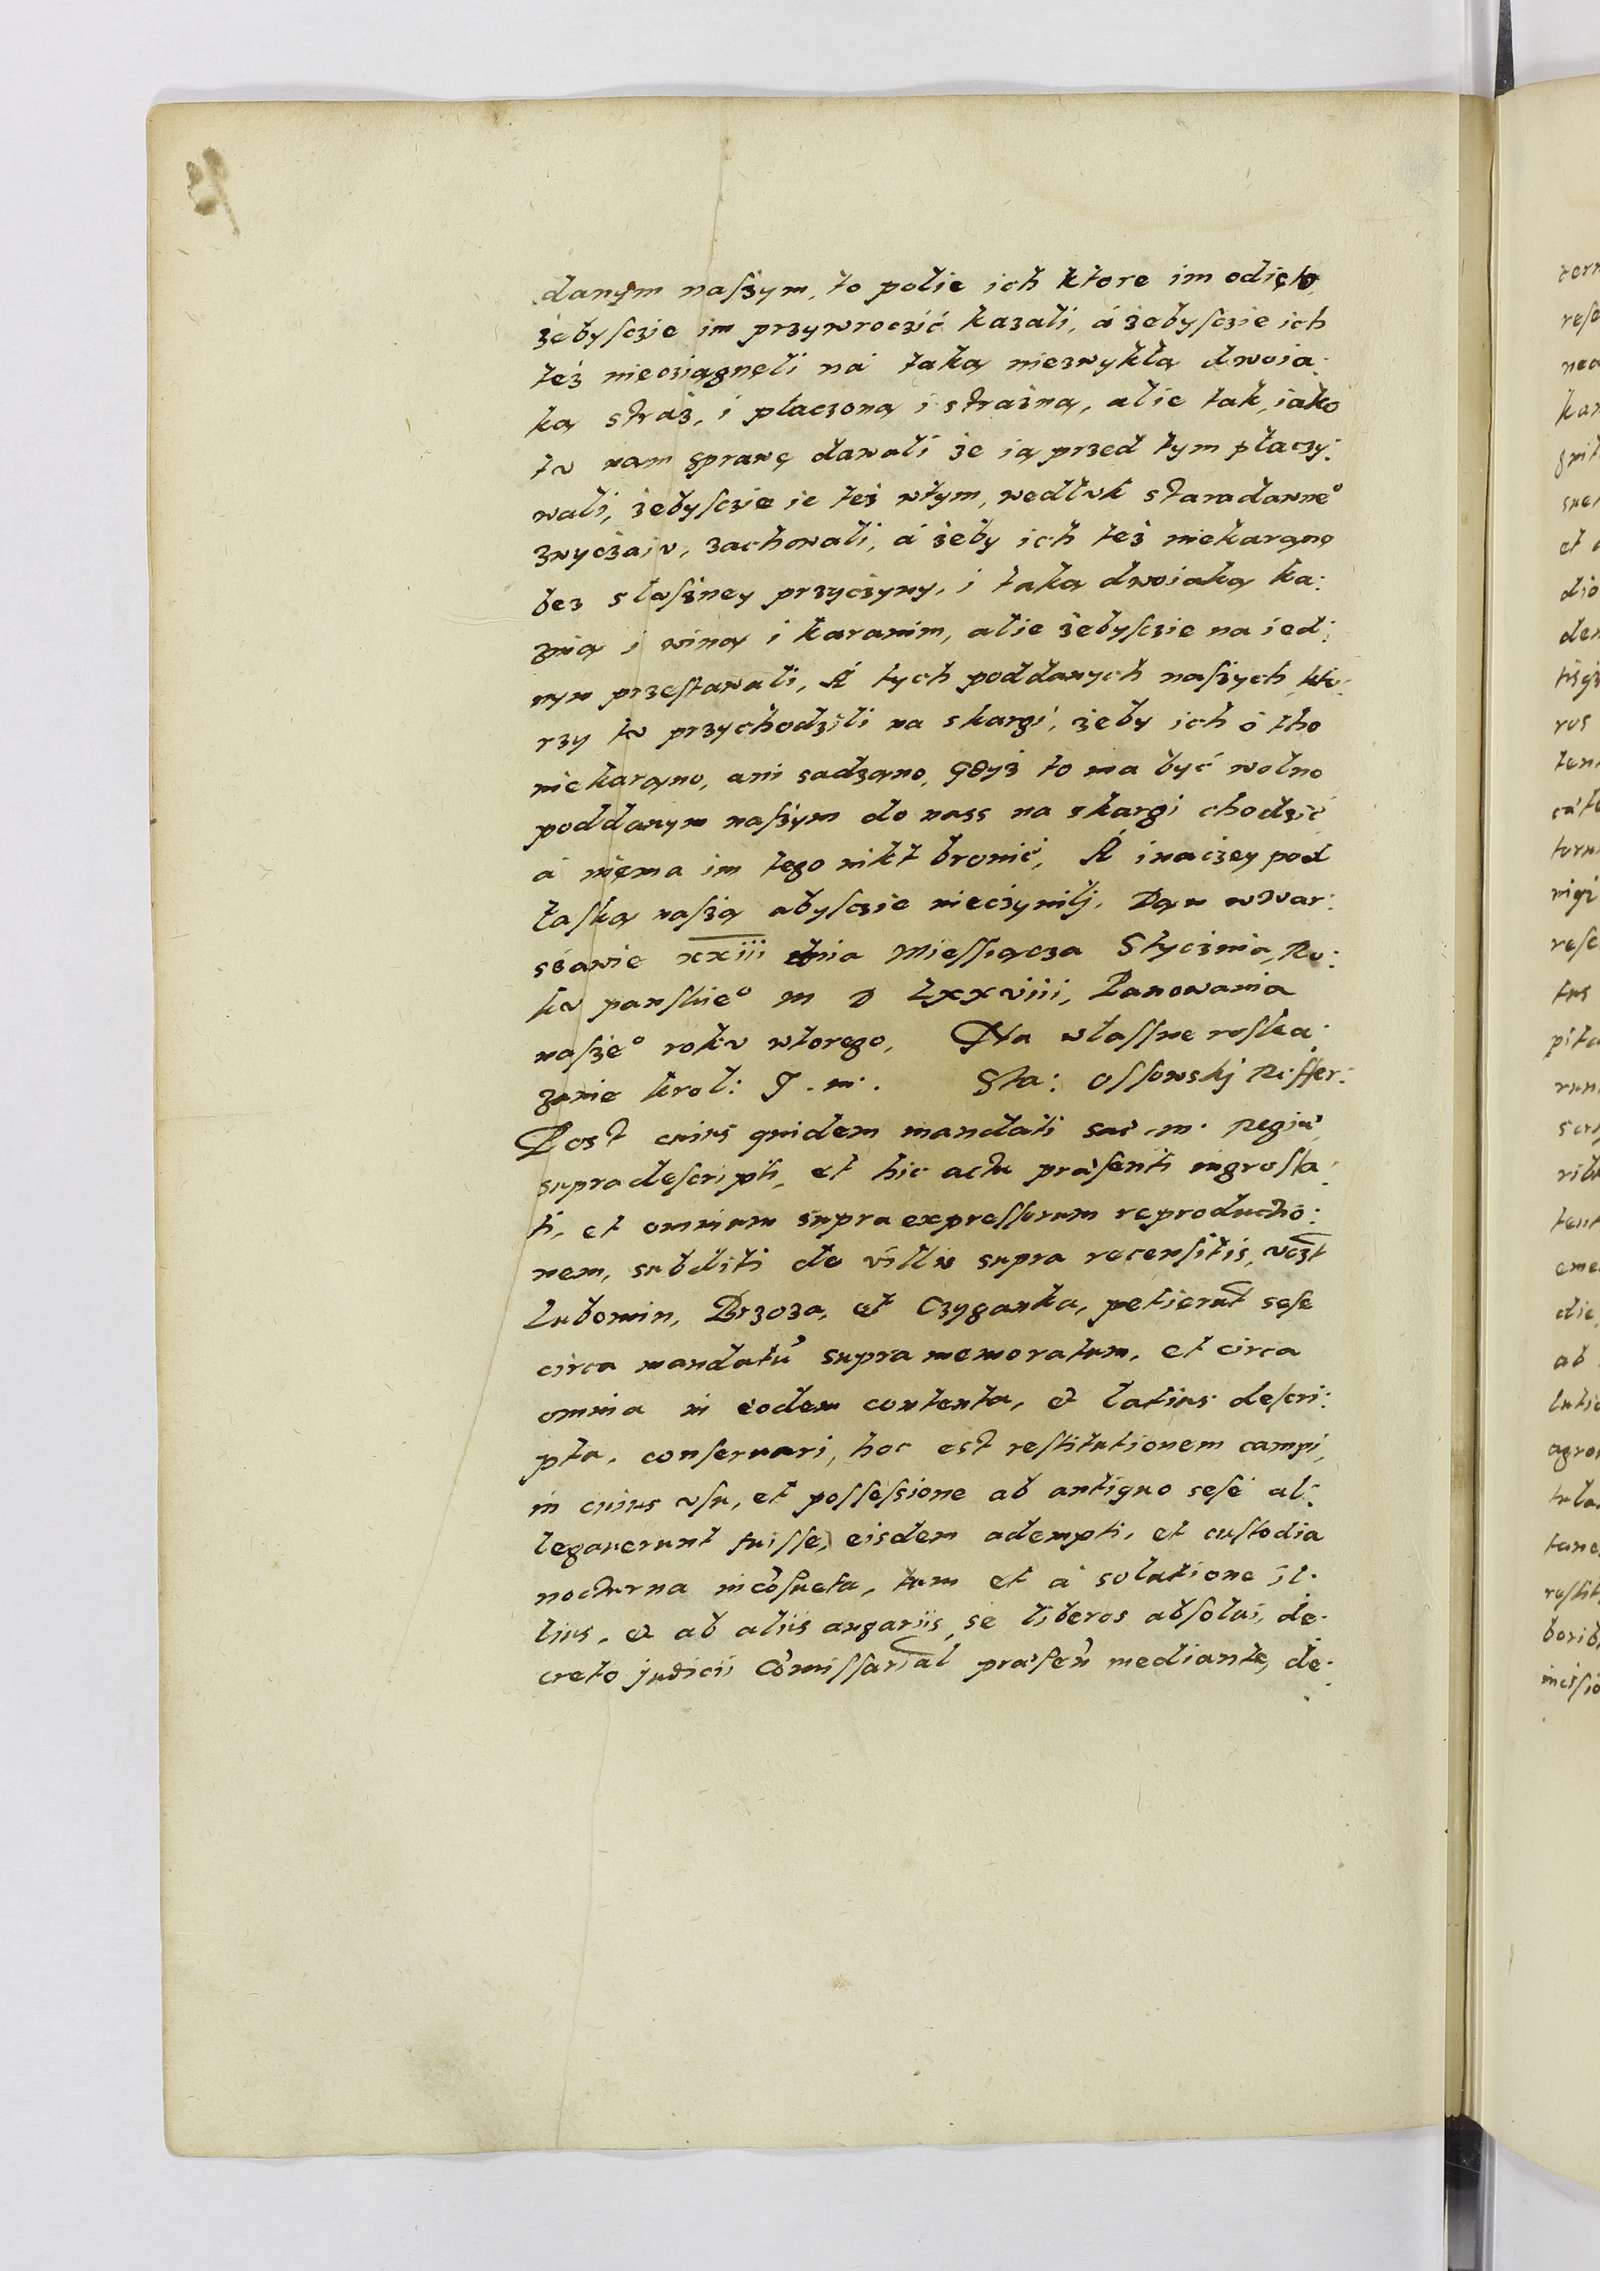 danym naszym, to polie ich ktore im odięto,
żebysczie im przywroczić kazali, á żebysczie ich
też nieoziągnęli ná taką niezwykłą dwoia:
ką straż, i płaczoną i strażną, alie tak, iáko
tv nam sprawę dawali że ią przed tym płaczy:
wali, żebysczie ie też wtym, wedlvk staradawneº
zwyczaiv, zachowali, á żeby ich też niekarąno
bez slvszney przyczyny, i taką dwoiaką ka:
źnią i winą i karanim, alie żebysczie na ied:
nym przestawali, A tych poddanych naszych, kto:
rzy tv przychodzili na skargi, żeby ich ó tho
niekarąno, ani sadząno, gdyż to ma być wolno
poddanym naszym do nass na skargi chodzić,
á niema im tego nikt bronić, A inaczey pod
łaską naszą abysczie nieczynilj, Dąn wWar:
sżawie xxiii dnia Miessiącza Stycznia, Ro:
kv panskieº M D Lxxviii, Panowania
naszeº rokv wtorego, Na włassne roska:
zanie krol: J. m. Sta: Ossowskj Reffer:
Post cuius quidem mandati sac. m. Regiæ,
supradescripti, et hic actu præsenti ingrossa:
ti, et omnium supra expressorum reproductio:
nem, subditi de villis supra recensitis, vczt
Lubomin, Brzoza, et Czyganka, petierunt sese
circa mandatū supra memoratum, et circa
omnia in eodem contenta, et latius descri:
pta, conseruari, hoc est restitutionem campi,
in cuius vsu, et possessione ab antiquo sese al:
legauerunt fuisse, eisdem adempti, et custodia
nocturna incōsueta, tum et á solutione il:
lius, et ab aliis angariis, se liberos absolui, de:
creto judicii Cōmissarial præsen mediante, de: